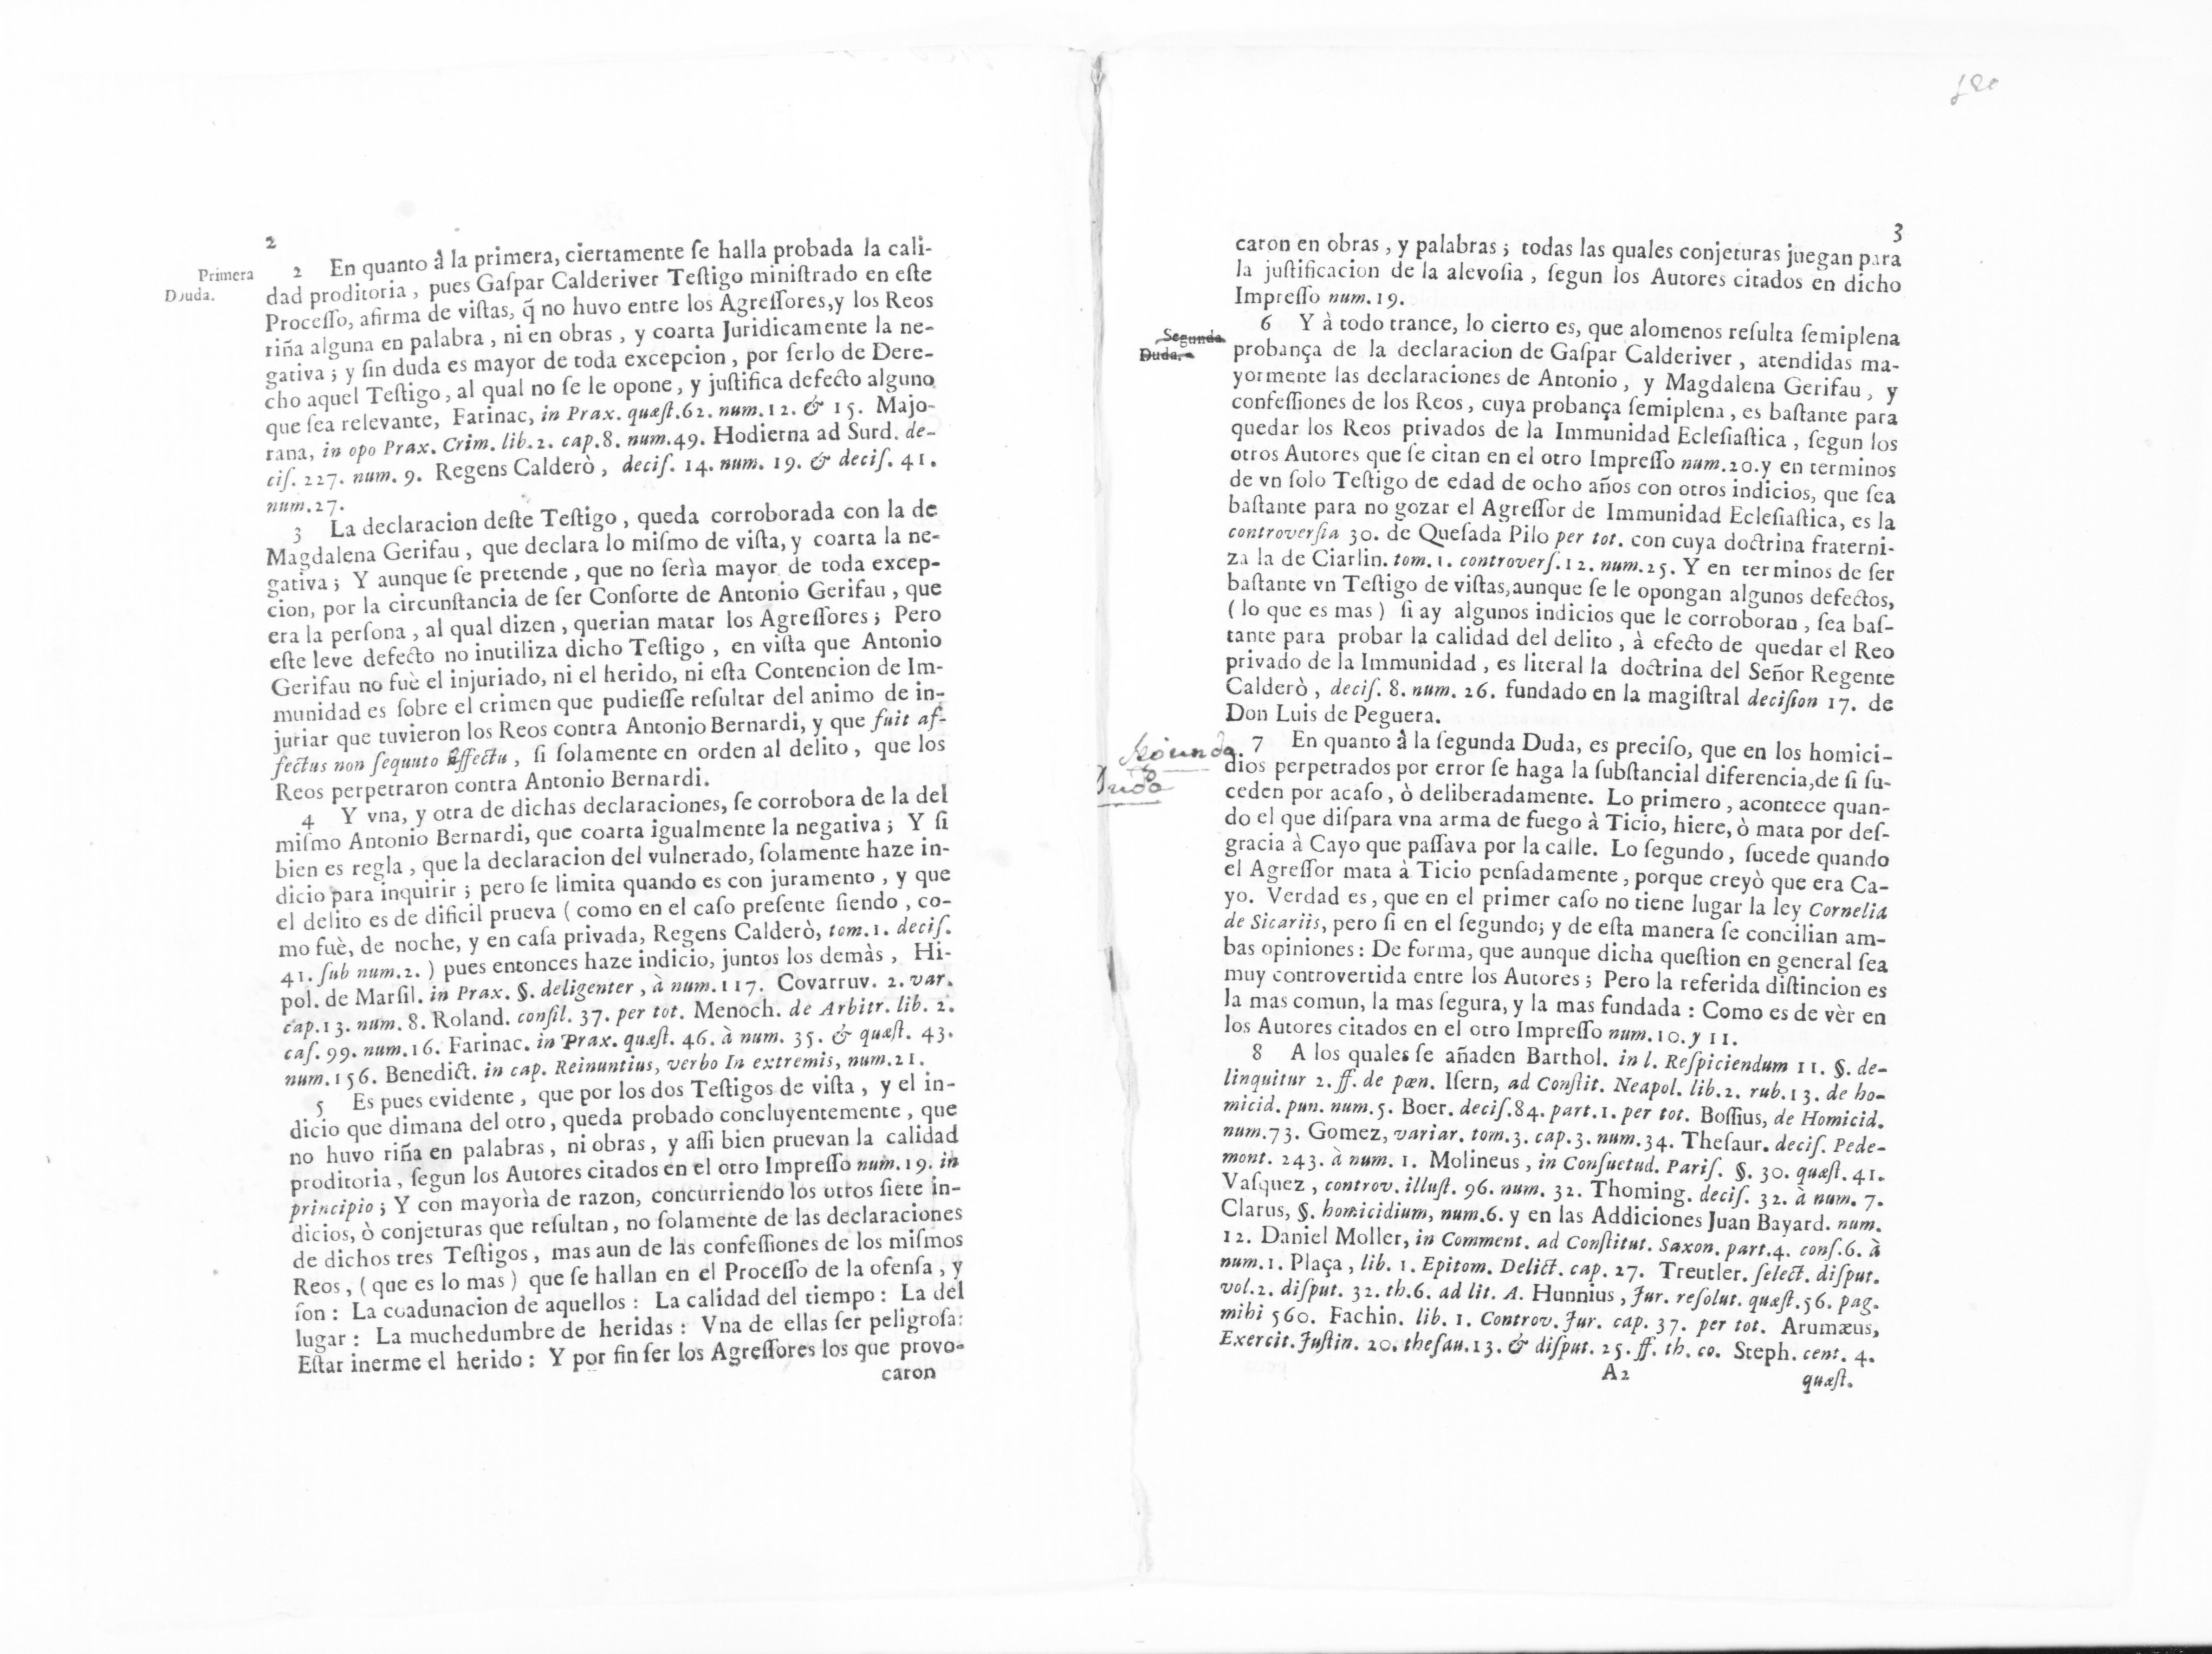 2
Primera
Duda.
2 En quanto à la primera, ciertamente ſe halla probada la cali-
dad proditoria, pues Gaſpar Calderiver Teſtigo miniſtrado en eſte
Proceſſo, afirma de viſtas, q̃ no huvo entre los Agreſſores, y los Reos
riña alguna en palabra, ni en obras, y coarta Juridicamente la ne-
gativa; y ſin duda es mayor de toda excepcion, por ſerlo de Dere-
cho aquel Teſtigo, al qual no ſe le opone, y juſtifica defecto alguno
que ſea relevante, Farinac, in Prax. quæſt.62. num.12. & 15. Majo-
rana, in opo Prax. Crim. lib.2. cap.8. num.49. Hodierna ad Surd. de-
ciſ. 227. num. 9. Regens Calderò, deciſ. 14. num. 19. & deciſ. 41.
num.27.
3 La declaracion deſte Teſtigo, queda corroborada con la de
Magdalena Gerifau, que declara lo miſmo de viſta, y coarta la ne-
gativa; Y aunque ſe pretende, que no ſerìa mayor de toda excep-
cion, por la circunſtancia de ſer Conſorte de Antonio Gerifau, que
era la perſona, al qual dizen, querian matar los Agreſſores; Pero
eſte leve defecto no inutiliza dicho Teſtigo, en viſta que Antonio
Gerifau no fuè el injuriado, ni el herido, ni eſta Contencion de Im-
munidad es ſobre el crimen que pudieſſe reſultar del animo de in-
juriar que tuvieron los Reos contra Antonio Bernardi, y que fuit af-
fectus non ſequuto effectu, ſi ſolamente en orden al delito, que los
Reos perpetraron contra Antonio Bernardi.
4 Y vna, y otra de dichas declaraciones, ſe corrobora de la del
miſmo Antonio Bernardi, que coarta igualmente la negativa; Y ſi
bien es regla, que la declaracion del vulnerado, ſolamente haze in-
dicio para inquirir; pero ſe limita quando es con juramento, y que
el delito es de dificil prueva (como en el caſo preſente ſiendo, co-
mo fuè, de noche, y en caſa privada, Regens Calderò, tom.1. deciſ.
41. ſub num.2.) pues entonces haze indicio, juntos los demàs, Hi-
pol. de Marſil. in Prax. §. deligenter, à num.117. Covarruv. 2. var.
cap.13. num. 8. Roland. conſil. 37. per tot. Menoch. de Arbitr. lib. 2.
caſ. 99. num.16. Farinac. in Prax. quæſt. 46. à num. 35. & quæſt. 43.
num.156. Benedict. in cap. Reinuntius, verbo In extremis, num.21.
5 Es pues evidente, que por los dos Teſtigos de viſta, y el in-
dicio que dimana del otro, queda probado concluyentemente, que
no huvo riña en palabras, ni obras, y aſſi bien pruevan la calidad
proditoria, ſegun los Autores citados en el otro Impreſſo num.19. in
principio; Y con mayorìa de razon, concurriendo los otros ſiete in-
dicios, ò conjeturas que reſultan, no ſolamente de las declaraciones
de dichos tres Teſtigos, mas aun de las confeſſiones de los miſmos
Reos, (que es lo mas) que ſe hallan en el Proceſſo de la ofenſa, y
ſon: La coadunacion de aquellos: La calidad del tiempo: La del
lugar: La muchedumbre de heridas: Vna de ellas ſer peligroſa:
Eſtar inerme el herido: Y por fin ſer los Agreſſores los que provo-
caron
3
caron en obras, y palabras; todas las quales conjeturas juegan para
la juſtificacion de la alevoſia, ſegun los Autores citados en dicho
Impreſſo num.19.
Segunda
Duda.
6 Y à todo trance, lo cierto es, que alomenos reſulta ſemiplena
probança de la declaracion de Gaſpar Calderiver, atendidas ma-
yormente las declaraciones de Antonio, y Magdalena Gerifau, y
confeſſiones de los Reos, cuya probança ſemiplena, es baſtante para
quedar los Reos privados de la Immunidad Ecleſiaſtica, ſegun los
otros Autores que ſe citan en el otro Impreſſo num.20. y en terminos
de vn ſolo Teſtigo de edad de ocho años con otros indicios, que ſea
baſtante para no gozar el Agreſſor de Immunidad Ecleſiaſtica, es la
controverſia 30. de Queſada Pilo per tot. con cuya doctrina fraterni-
za la de Ciarlin. tom. 1. controverſ.12. num.25. Y en terminos de ſer
baſtante vn Teſtigo de viſtas, aunque ſe le opongan algunos defectos,
(lo que es mas) ſi ay algunos indicios que le corroboran, ſea baſ-
tante para probar la calidad del delito, à efecto de quedar el Reo
privado de la Immunidad, es literal la doctrina del Señor Regente
Calderò, deciſ. 8. num. 26. fundado en la magiſtral deciſion 17. de
Don Luis de Peguera.
Segunda
Duda
7 En quanto à la ſegunda Duda, es preciſo, que en los homici-
dios perpetrados por error ſe haga la ſubſtancial diferencia, de ſi ſu-
ceden por acaſo, ò deliberadamente. Lo primero, acontece quan-
do el que diſpara vna arma de fuego à Ticio, hiere, ò mata por deſ-
gracia à Cayo que paſſava por la calle. Lo ſegundo, ſucede quando
el Agreſſor mata à Ticio penſadamente, porque creyò que era Ca-
yo. Verdad es, que en el primer caſo no tiene lugar la ley Cornelia
de Sicariis, pero ſi en el ſegundo; y de eſta manera ſe concilian am-
bas opiniones: De forma, que aunque dicha queſtion en general ſea
muy controvertida entre los Autores; Pero la referida diſtincion es
la mas comun, la mas ſegura, y la mas fundada: Como es de vèr en
los Autores citados en el otro Impreſſo num.10. y 11.
8 A los quales ſe añaden Barthol. in l. Reſpiciendum 11. §. de-
linquitur 2. ff. de pœn. Iſern, ad Conſtit. Neapol. lib.2. rub.13. de ho-
micid. pun. num.5. Boer. deciſ.84. part.1. per tot. Boſſius, de Homicid.
num.73. Gomez, variar. tom.3. cap.3. num.34. Theſaur. deciſ. Pede-
mont. 243. à num. 1. Molineus, in Conſuetud. Pariſ. §. 30. quæſt. 41.
Vaſquez, controv. illuſt. 96. num. 32. Thoming. deciſ. 32. à num. 7.
Clarus, §. homicidium, num.6. y en las Addiciones Juan Bayard. num.
12. Daniel Moller, in Comment. ad Conſtitut. Saxon. part.4. conſ.6. à
num.1. Plaça, lib. 1. Epitom. Delict. cap. 27. Treutler. ſelect. diſput.
vol.2. diſput. 32. th.6. ad lit. A. Hunnius, Jur. reſolut. quæſt.56. pag.
mihi 560. Fachin. lib. 1. Controv. Jur. cap. 37. per tot. Arumæus,
Exercit. Juſtin. 20. theſau.13. & diſput. 25. ff. th. co. Steph. cent. 4.
A2
quæſt.